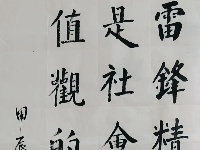 雷鋒精
是社會
值觀的
田辰